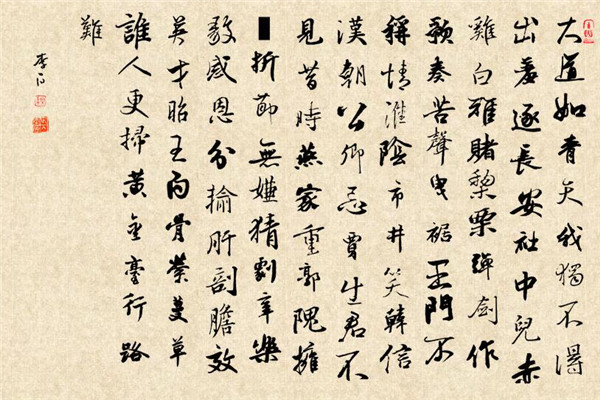 大道如青天我獨不得
出羞逐長安社中兒赤
雞白雉賭棃栗彈劍作
歌奏苦聲曳裾王門不
稱情淮陰市井笑韓信
漢朝公卿忌賈生君不
見昔時燕家重郭隗擁
折節無嫌猜劇辛樂
毅感恩分輸肝剖膽效
英才昭王白骨縈蔓草
誰人更掃黃金臺行路
難
李白